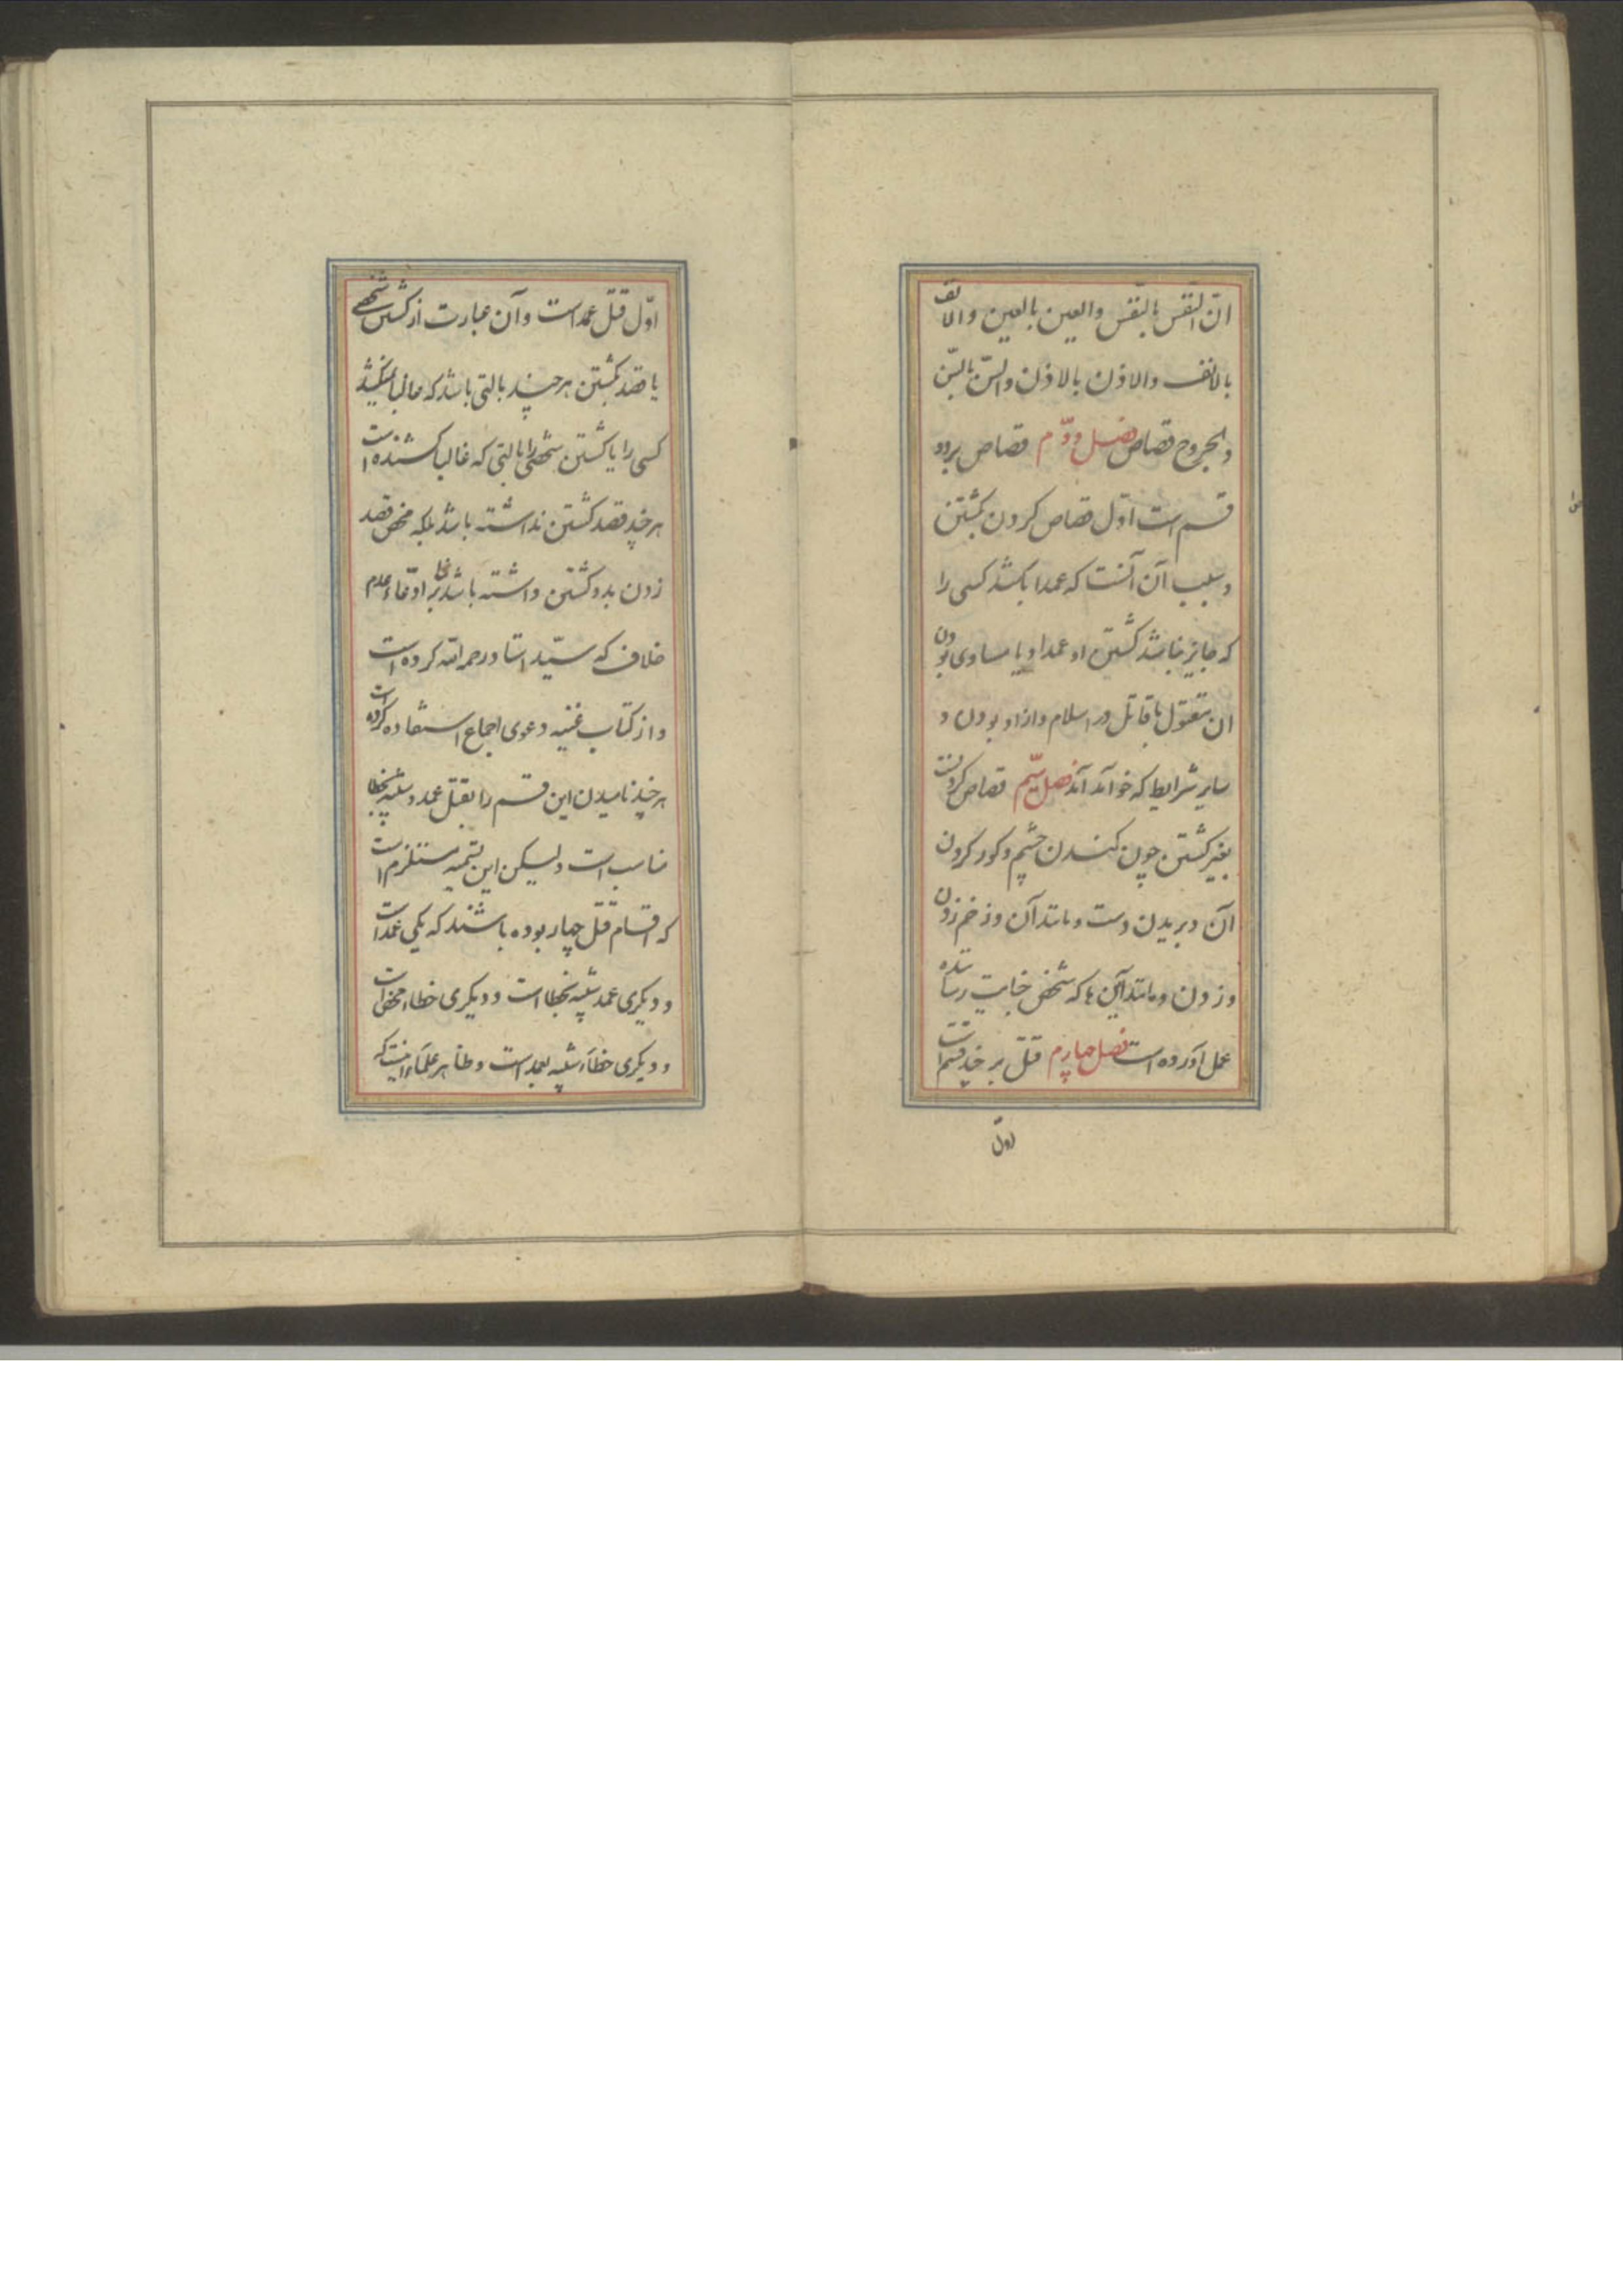 انّ النّفس بالنّفس والعین بالعین والانف
بالانف والاذن بالاذن والسّنّ بالسّنّ
والجروح قصاص فصل دوّم قصاص بر دو
قسم است اوّل قصاص کردن بکشتن
و سبب آن آنست که عمدا بکشد کسی را
که جایز نباشد کشتن او عمدا و با مساوی بودن
ان مقتول با قاتل در اسلام و ازاد بودن و
سایر شرایط که خواهد آمد فصل سیّم قصاص کردنست
بغیر کشتن چون کندن چشم و کور کردن
آن و بریدن دست و مانند آن و زخم زدن
و زدن و مانند این ها که شخص جنایت رساننده
بعمل آورده است فصل چهارم قتل بر چند قسم است
اول
اوّل قتل عمد است و آن عبارت از کشتن شخصی
با قصد بکشتن هر چند بالتی باشد که غالبا نمیکشد
کسی را یا کشتن شخصی را بالتی که غالبا کشنده است
هر چند قصد کشتن نداشته باشد بلکه محض قصد
زدن بدو کشتن داشته باشد بنا بر ادّعاء عدم
خلاف که سیّد استاد رحمه الله کرده است
و از کتاب غنیه دعوی اجماع استفاده کرده است
هر چند نامیدن این قسم را بقتل عمد و شبیه بخطا
مناسب است و لیکن این تسمیه مستلزم است
که اقسام قتل چهار بوده باشند که یکی عمد است
و دیکری عمد شبیه بخطا است و دیکری خطاء محض است
و دیکری خطاء شبیه بعمد است و ظاهر علماء اینست که